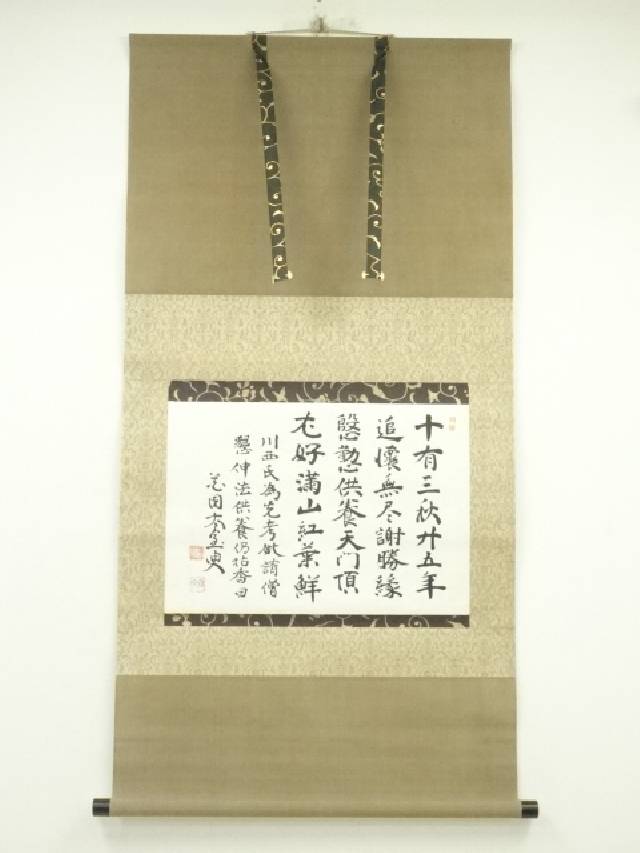 十有三秋廾五年
追懐無尽謝勝縁
慇懃供養天門頂
尤好満山紅葉鮮
川西氏為先考欲請僧
慇伸法供養仍拈香曰